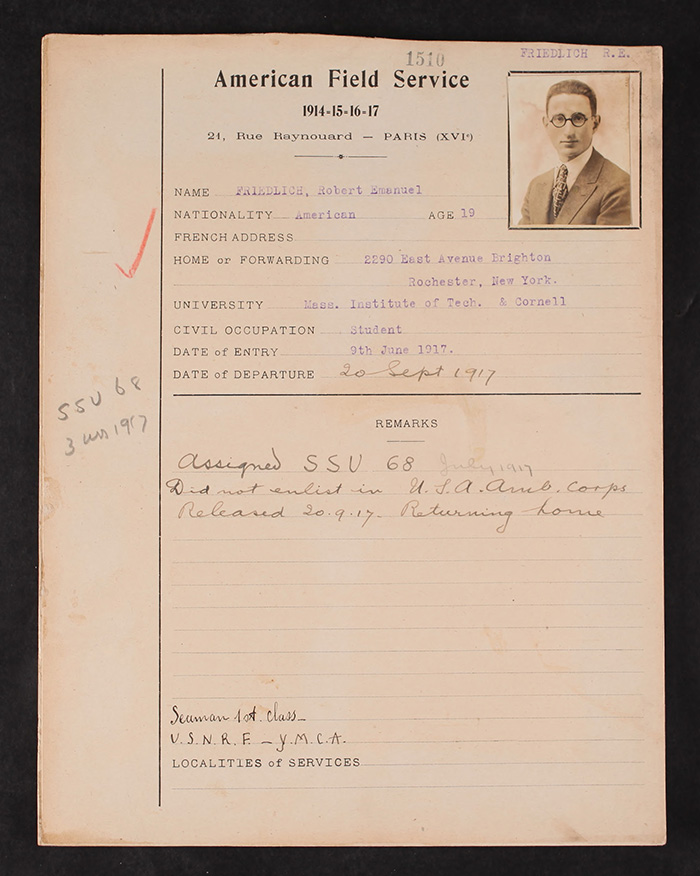 1510
FRIEDLICH R.E.
American Field Service
1914-15-16-17
21, Rue Raynouard — PARIS (XVIe)
NAME FRIEDLICH, Robert Emanuel
NATIONALITY American AGE 19
FRENCH ADDRESS
HOME or FORWARDING 2290 East Avenue Brighton
Rochester, New York.
UNIVERSITY Mass. Institute of Tech. & Cornell
CIVIL OCCUPATION Student
DATE of ENTRY 9th June 1917.
DATE of DEPARTURE 20 Sept 1917
SSU 68
3 1917
REMARKS
Assigned SSU 68 July 1917
Did not enlist in U.S.A. Amb. Corps
Released 20.9.17. Returning home
Seaman 1st. class—
U.S.N.R.F. — Y.M.C.A.
LOCALITIES of SERVICES